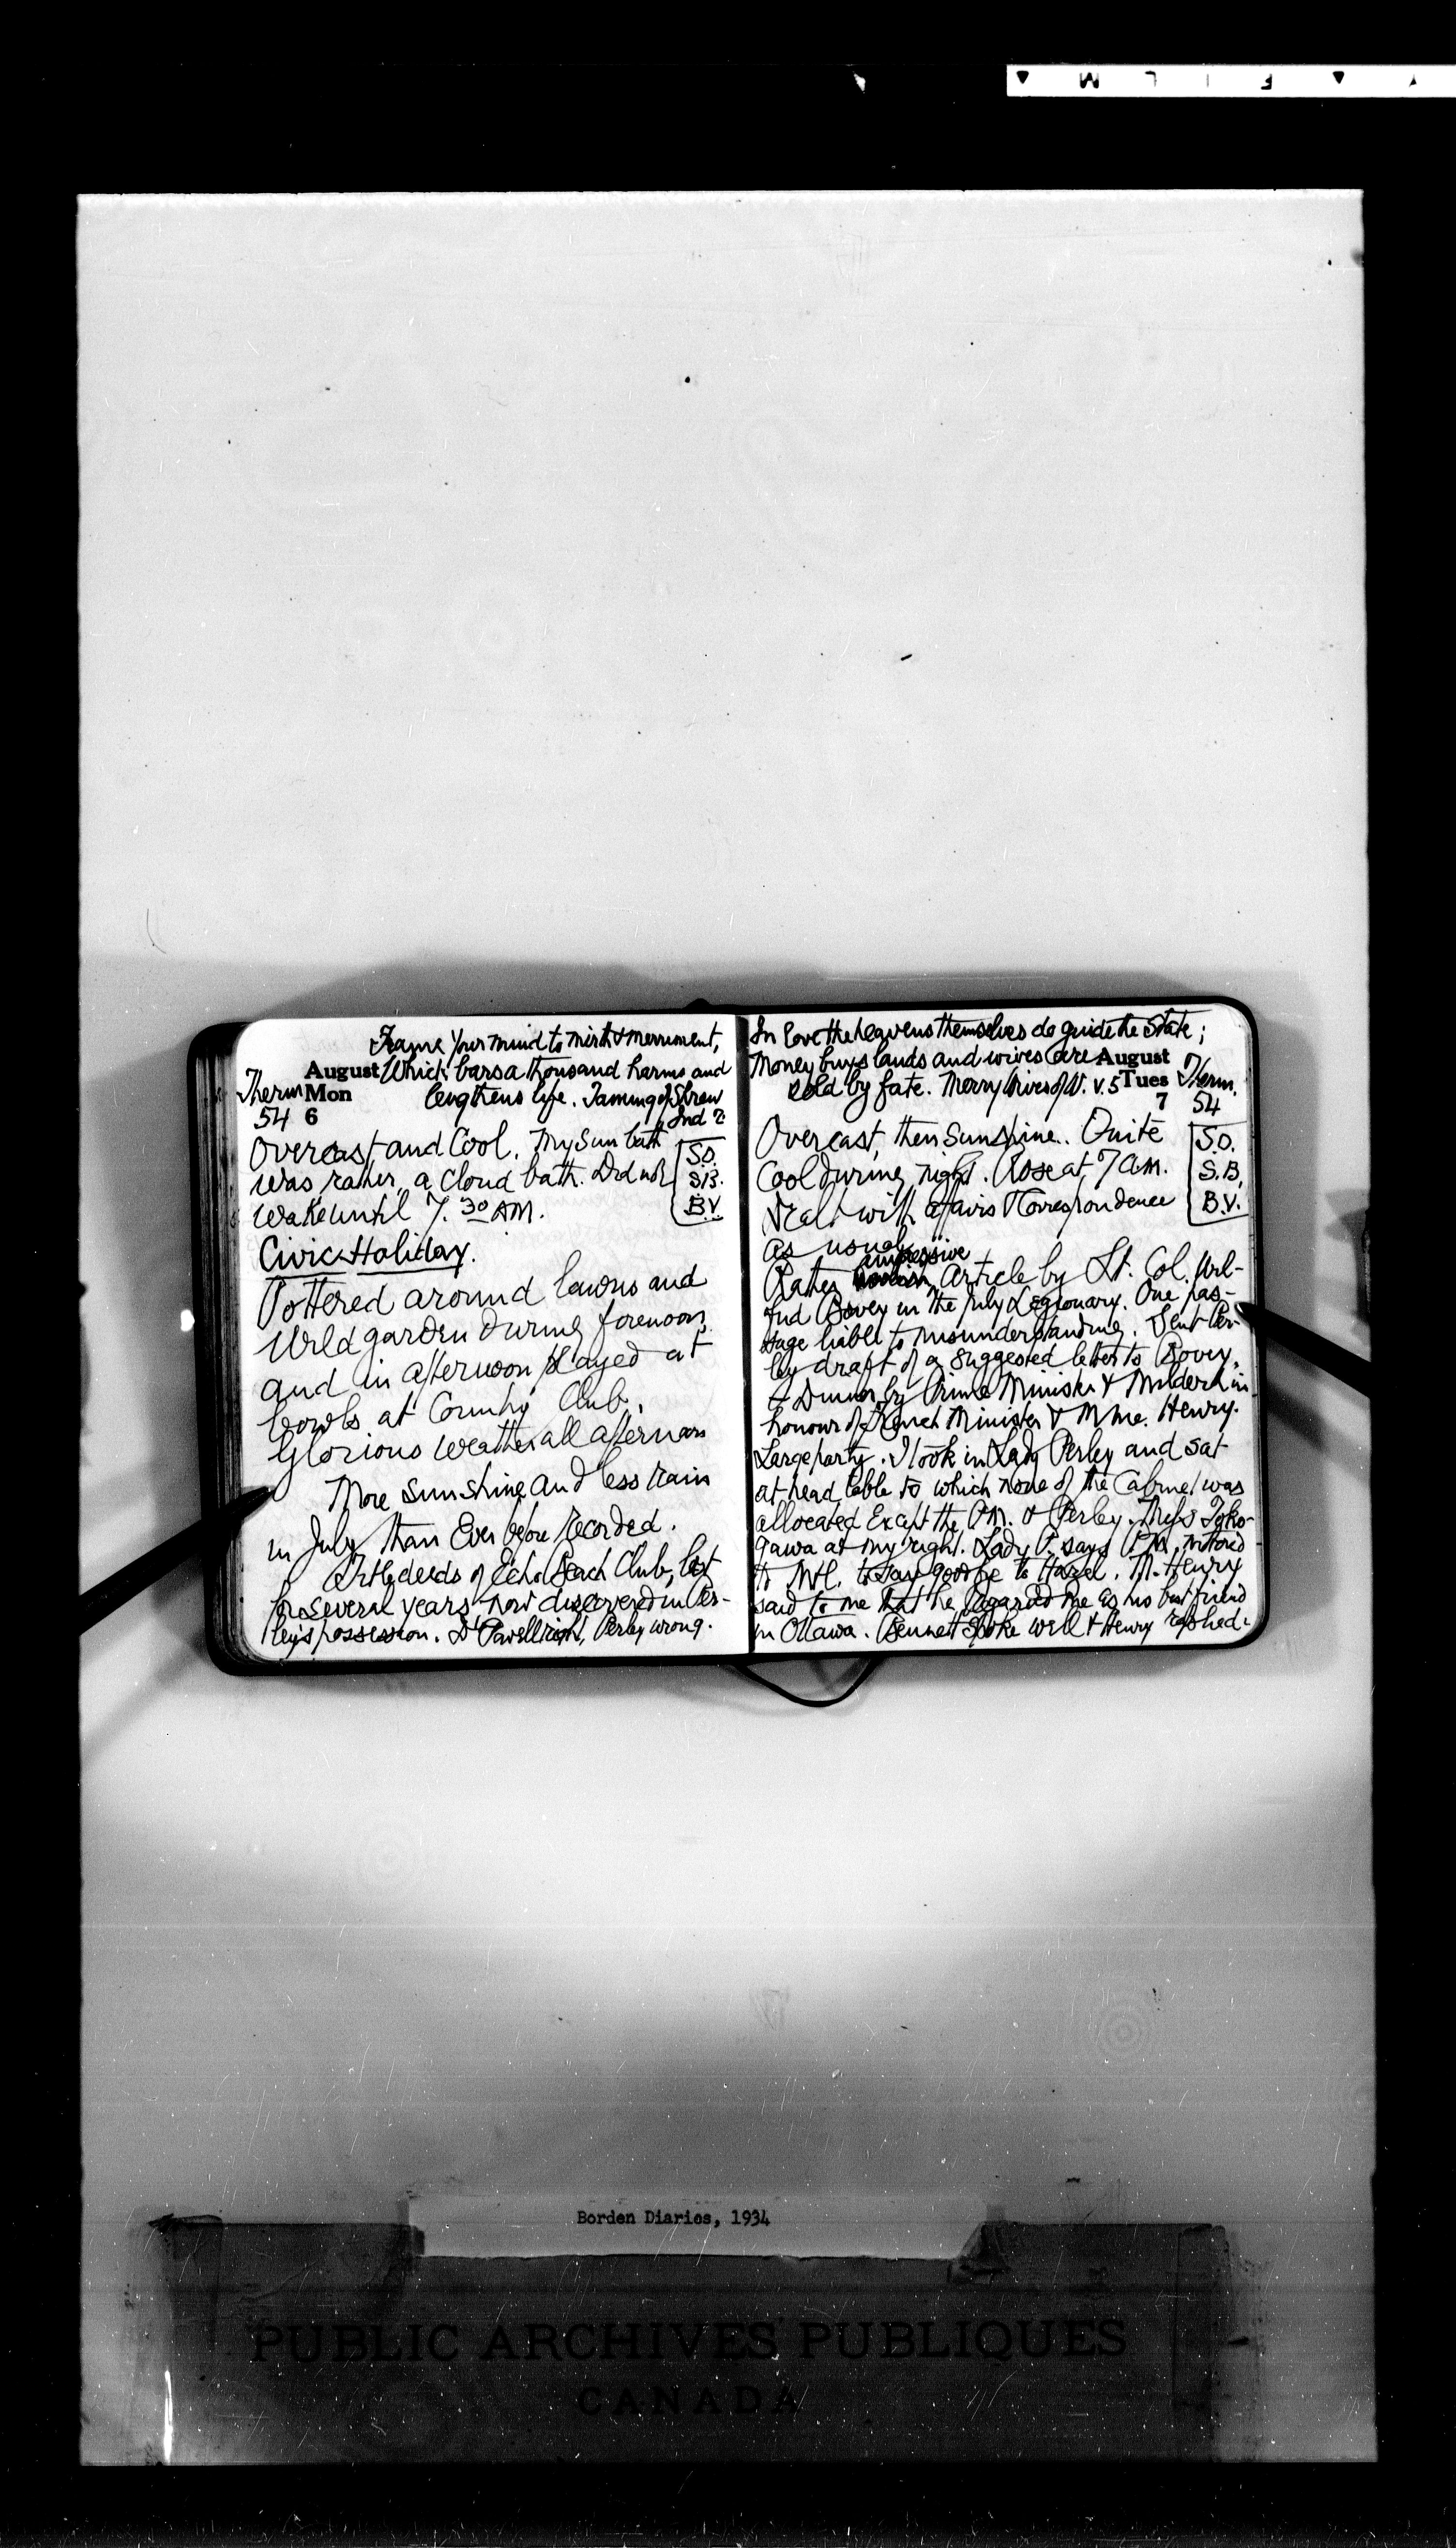 F I L M
Frame your mind to mirth & merriment,
August Which bars a thousand harms and
Therm Mon lengthens life. Taming of Shrew
54 6 Ind 2
Overcast and Cool. My Sun bath S.O.
was rather a cloud bath. Did not S.B.
wake until 7.30 AM. B.V.
Civic Holiday.
Pottered around lawns and
wild garden during forenoon
and in afternoon played at
bowls at Country Club.
Glorious weather all afternoon
More sunshine and less rain
in July than Ever before recorded.
Title deeds of Echo Beach Club, lost
for several years, now discovered in Per-
ley's possession. Powell right, Perley wrong.
In love the heavens themselves do guide the State;
Money buys lands and wives are August
sold by fate. Merry Wives of W. V. 5 Tues Therm.
7 54
Overcast, then Sunshine. Quite S.O.
Cool during night. Rose at 7 am. S.B.
Dealt with affairs & Correspondence B.V.
as usual
impressive
Rather Article by Lt. Col. Wil-
frid Bovey in the July Legionary. One pas-
sage liable to misunderstanding. Sent Per-
ley draft of a suggested letter to Bovey.
Dinner by Prime Minister & Mildred in
honour of French Minister & Mme. Henry.
Large party. I took in Lady Perley and sat
at head table to which none of the Cabinet was
allocated Except the P.M. & Perley. Mrs Toko-
gawa at my right. Lady P. says P.M. motored
to Mtl. to say goodbye to Hazel. M. Henry
said to me that he regarded me as his best friend
in Ottawa. Bennett spoke well & Henry replied.
Borden Diaries, 1934
PUBLIC ARCHIVES PUBLIQUES
CANADA